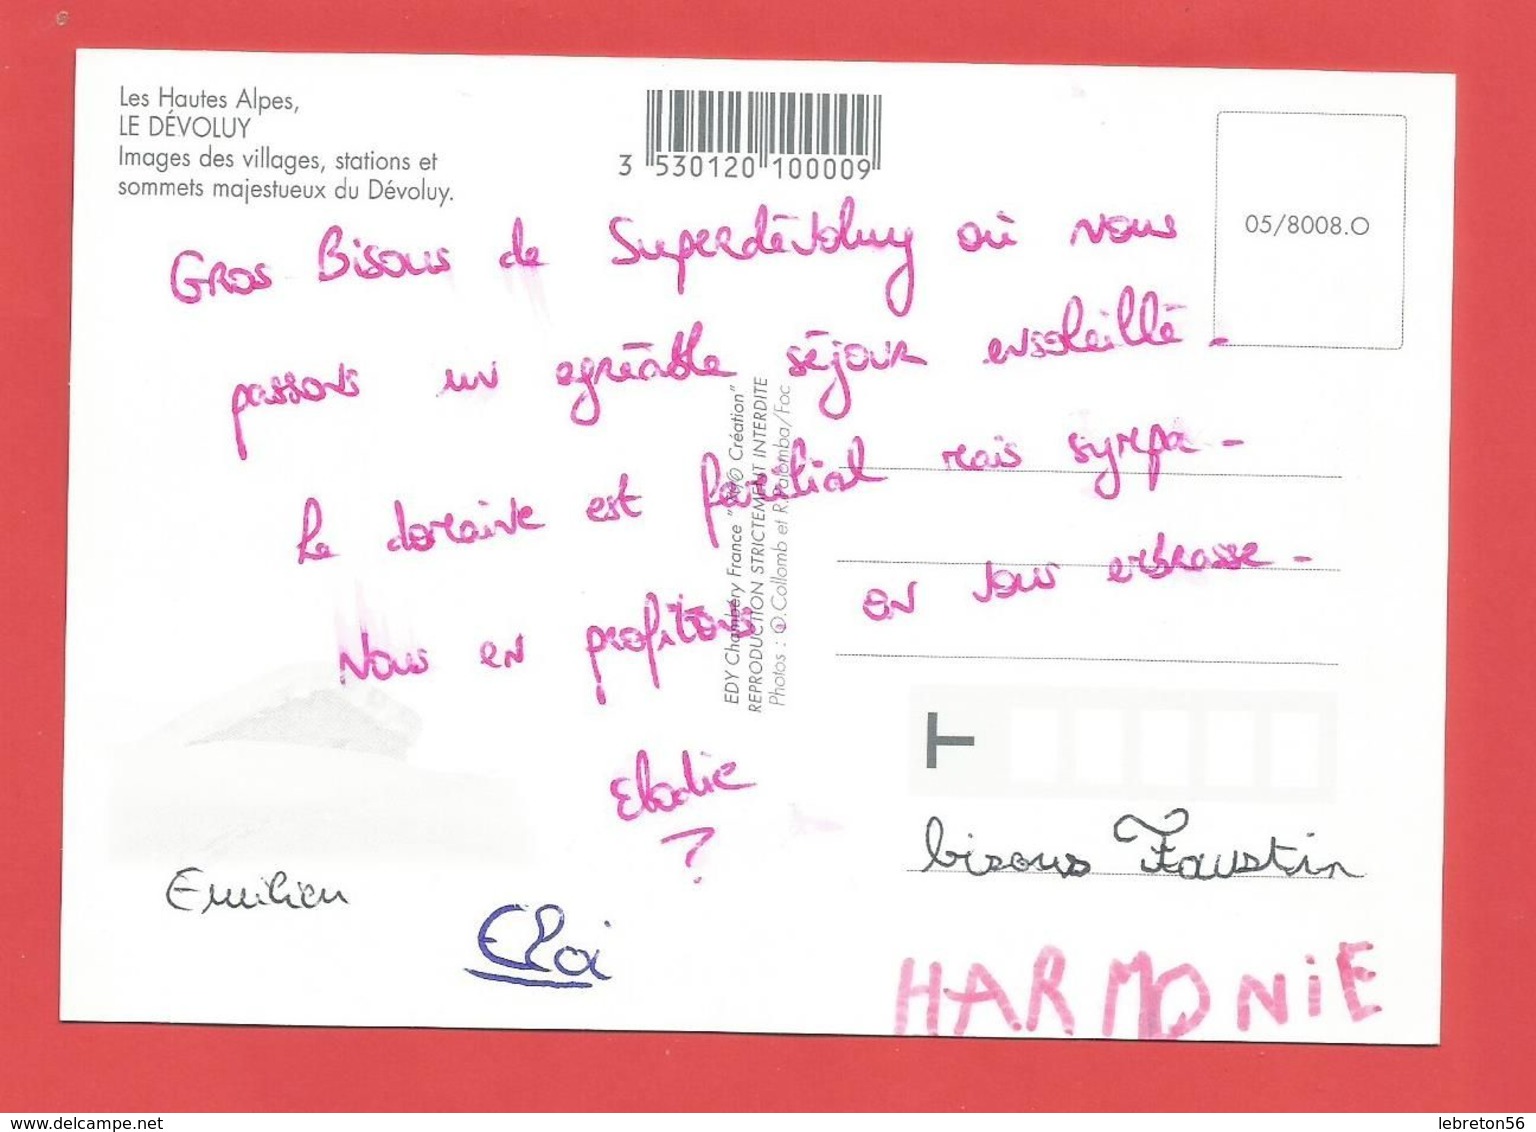 Les Hautes Alpes,
LE DÉVOLUY
Images des villages, stations et
sommets majestueux du Dévoluy.
3 530120 100009
05/8008.O
Gros Bisous de Superdévoluy où nous
passons un agréable séjour ensoleillé.
Le domaine est familial mais sympa.
Nous en profitons on vous embrasse.
Elodie
?
EDY Chambéry France "®© Création"
REPRODUCTION STRICTEMENT INTERDITE
Photos : O.Collomb et R.Palomba/Foc
T
bisous Faustin
Emilien
Eloi
HARMONIE
delcampe.net
lebreton56